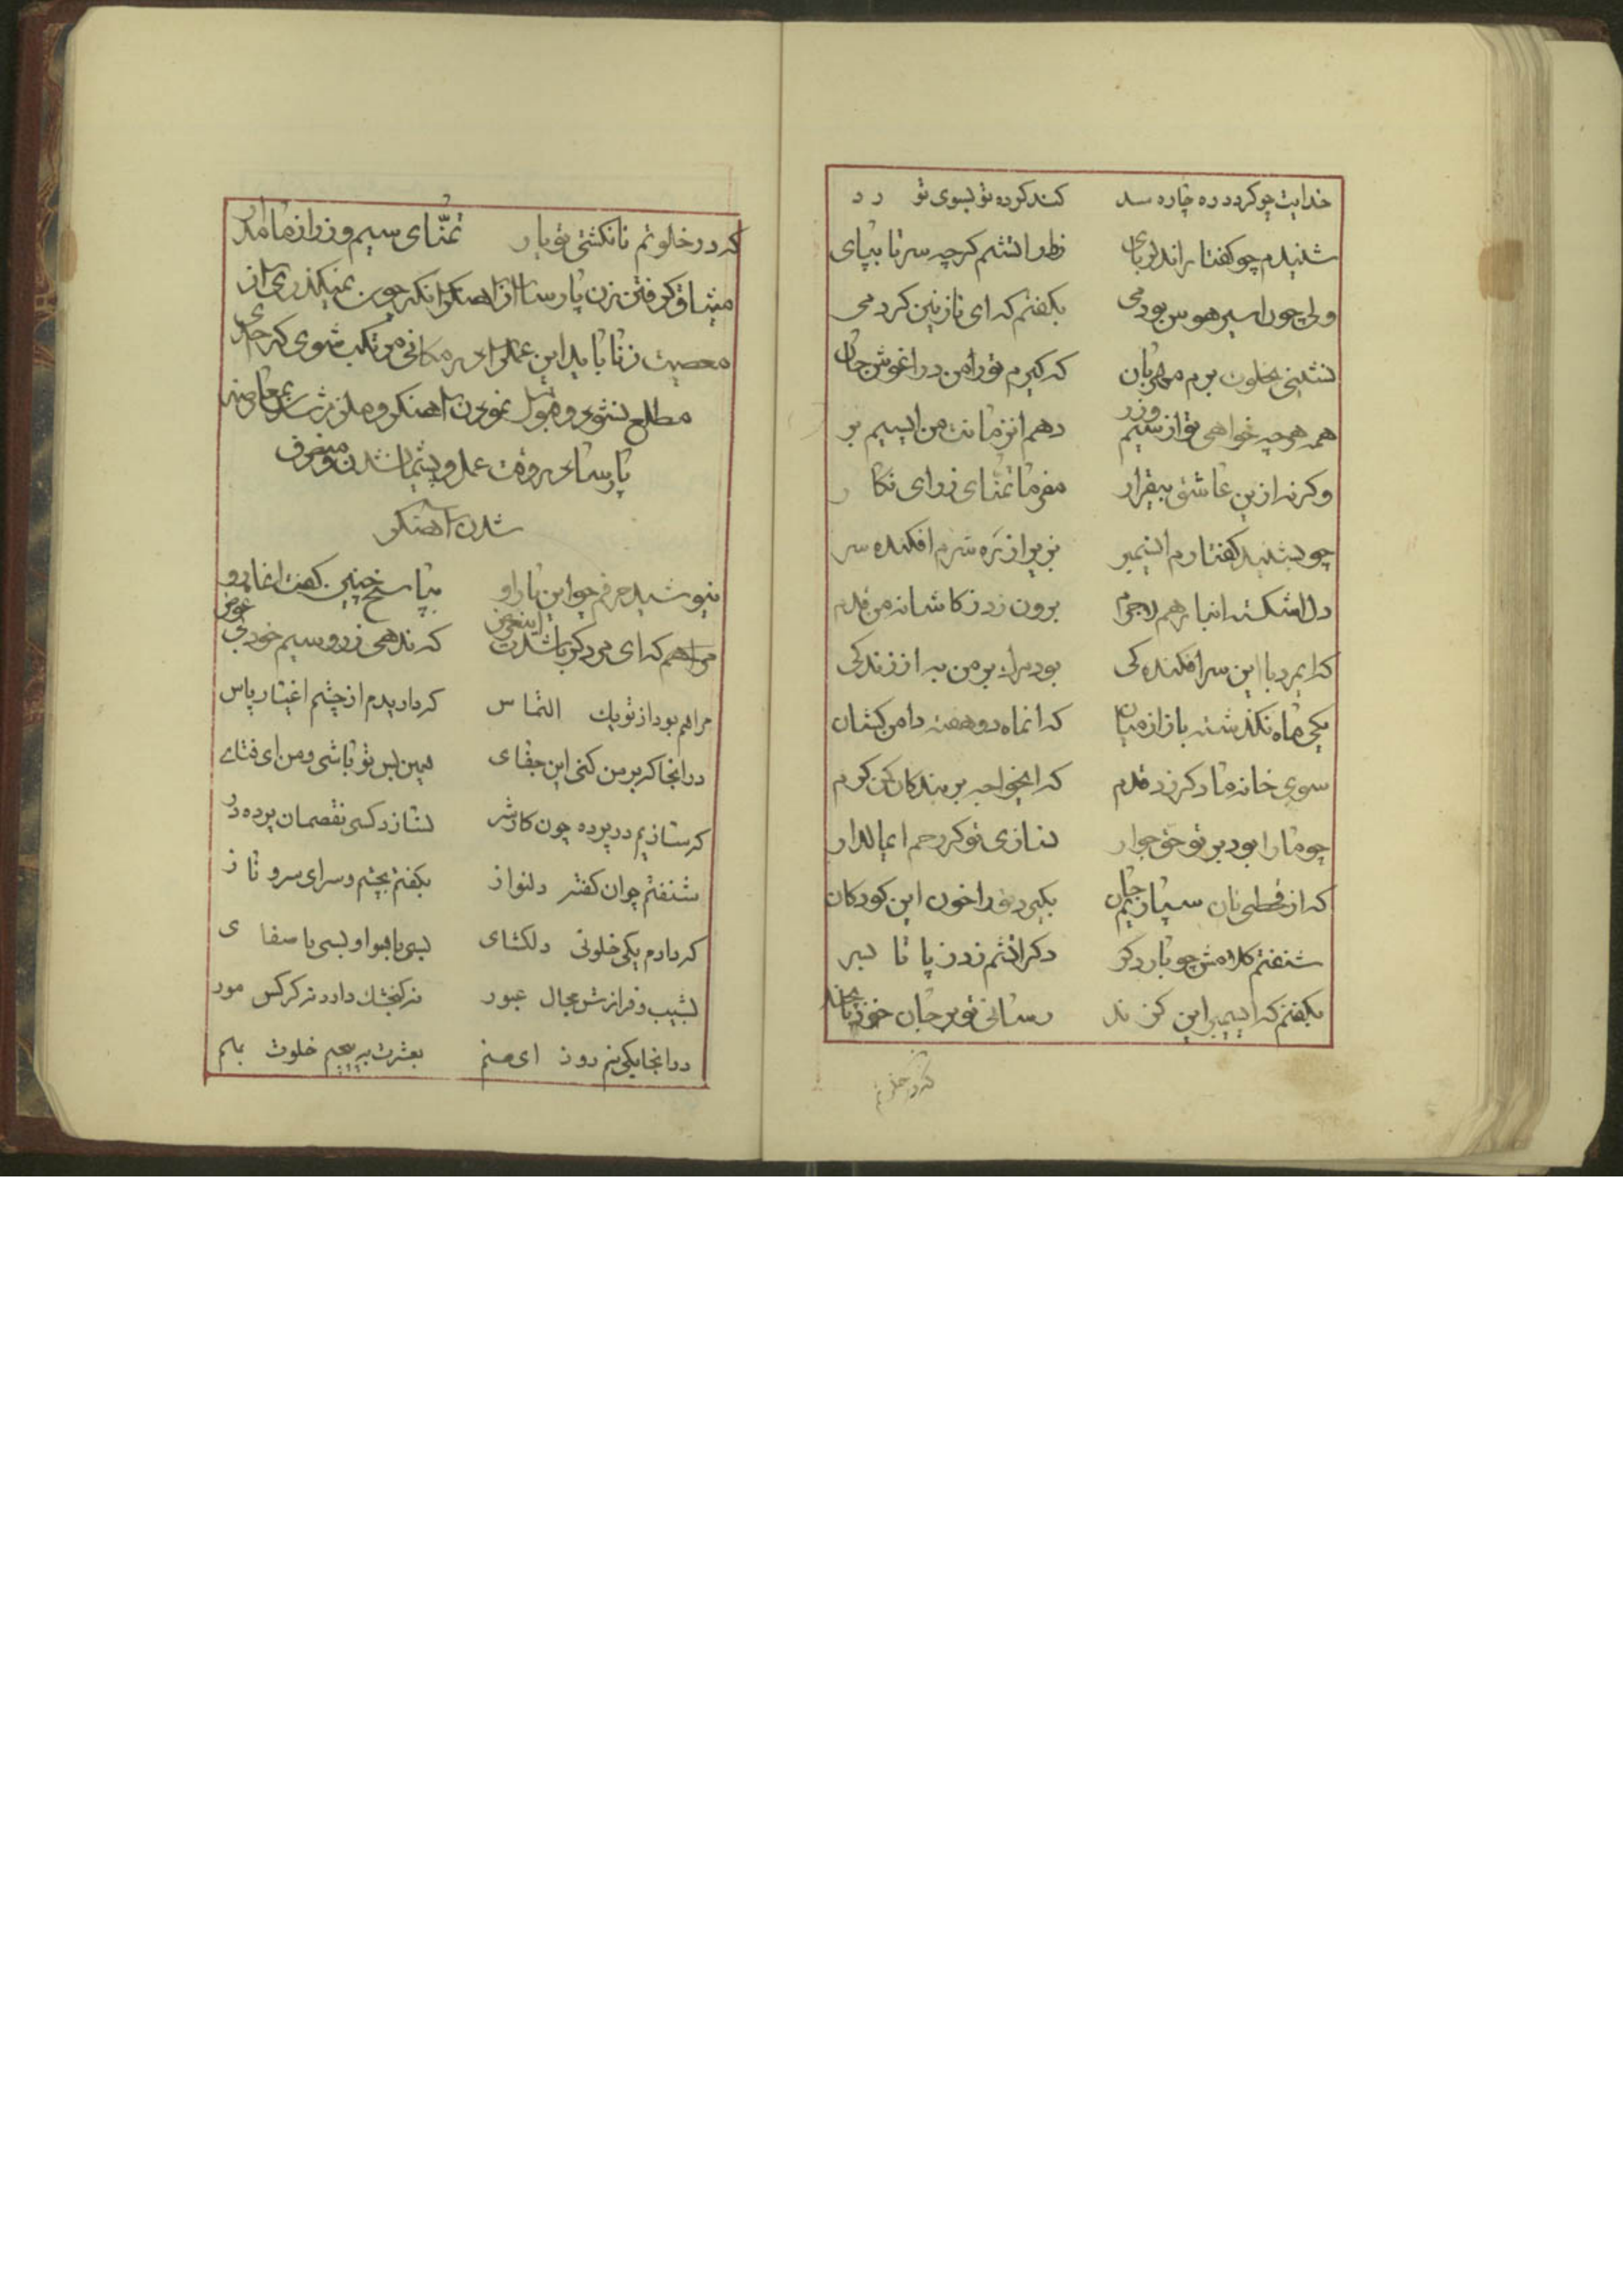 خدایت چو کردد ره چاره سد کند کرده تو بسوی تو رد
شنیدم چو کفتار اندلربای زطرا تشم کرچه سر تا بپای
ولی چون اسیر هوس بودمی بکفتم که ای نازنین کردمی
نشینی بخلوت برم مهربان که کیرم تورا من در اغوش جان
همه هرچه خواهی تو از سیم وزر دهم انزمانت من ایسیم بر
وکرنه ازین عاشق بیقرار مفرما تمنّای زر ای نکار
چو بشنید کفتارم انسیمبر بزیر از ره شرم افکنده سر
دل اشکسته انبار هم لاجرم برون زد ز کاشانه من قدم
که ایمرد با این سرافکنده کی بود مرک بر من به از زندکی
یکی ماه نکذشته باز از میان که انماه دو هفته دامن کشان
سوی خانه ما دکر زد قدم که ایخواجه بر بندکان کن کرم
چو ما را بود بر تو حق جوار نسازی تو کر رحم ایمالدار
که از قحطی نان سپاریم جان بکیرد تورا خون این کودکان
شنفتم کلامش چو بار دکر دکر اتشم زد ز پا تا بسر
بکفتم که ایسیمبر این کزند رسانی تو بر جان خود تا بچند
که در خلوتم
که در خلوتم تا نکشتی تو یار تمنّای سیم و زر از ما مدار
میثاق کرفتن زن پارسا از اهنکر انکه چون نمیکذری از
معصیت زنا باید این عمل را در مکانی مرتکب شوی که احدی
مطلع نشود و قبول نمودن اهنکر و ملزم شدن
پارسا در وقت عمل و پشیمان شدن و منصرف
شدن اهنکر
نیوشید حرفم چو این بار او بپاسخ چنین کفت انماه رو
مرا هم که ای مرد کر باشدت اینغرض که ندهی زر و سیم خود بی عوض
مرا هم بود از تو یک التماس که داریدم از چشم اغیار پاس
در انجا کر بر من کنی این جفای همین بس تو باشی و من ای فتای
که سازیم در پرده چون کار شر نسازد کسی نقصمان پرده در
شنفتم چو ان کفته دلنواز بکفتم بچشم و سر ای سرو ناز
که دارم یکی خلوتی دلکشای بسی با هوا و بسی با صفای
نشیب و فرازش مجال عبور نه کنجشک دارد نه کرکس نه مور
در انجا یکی نیم روز ای صنم بعشرت به پیچیم خلوت بهم